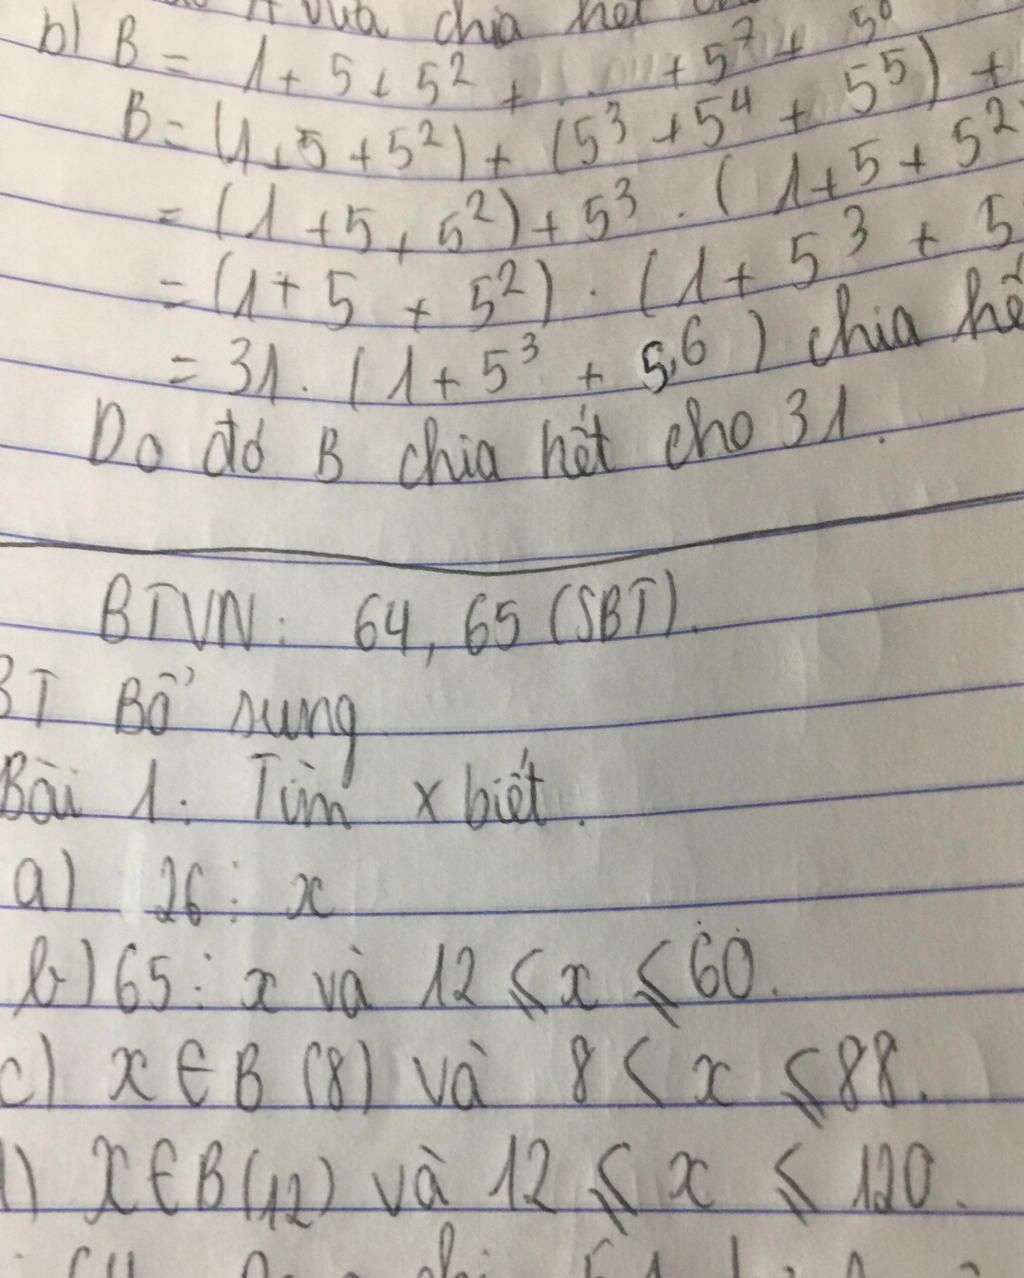 vừa chia hết
b) B = 1 + 5 + 5² + ... + 5⁷ + 5⁸
B = (1 + 5 + 5²) + (5³ + 5⁴ + 5⁵) +
= (1 + 5 + 5²) + 5³ . (1 + 5 + 5²
= (1 + 5 + 5²) . (1 + 5³ + 5
= 31 . (1 + 5³ + 5⁶) chia hế
Do đó B chia hết cho 31.
BTVN: 64, 65 (SBT).
BT Bổ sung
Bài 1: Tìm x biết.
a) 26 ⋮ x
b) 65 ⋮ x và 12 ⩽ x ⩽ 60.
c) x ∈ B (8) và 8 < x ⩽ 88.
d) x ∈ B(12) và 12 ⩽ x ⩽ 120.